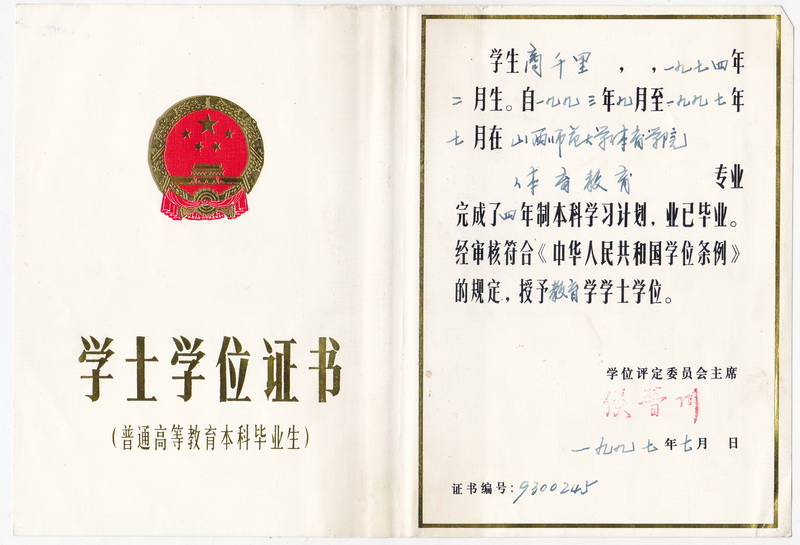 学士学位证书
（普通高等教育本科毕业生）
学生商千里，，一九七四年
二月生。自一九九三年九月至一九九七年
七月在山西师范大学体育学院
体育教育 专业
完成了四年制本科学习计划，业已毕业。
经审核符合《中华人民共和国学位条例》
的规定，授予教育学学士学位。
学位评定委员会主席
张晋川
一九九七年七月 日
证书编号：9300245